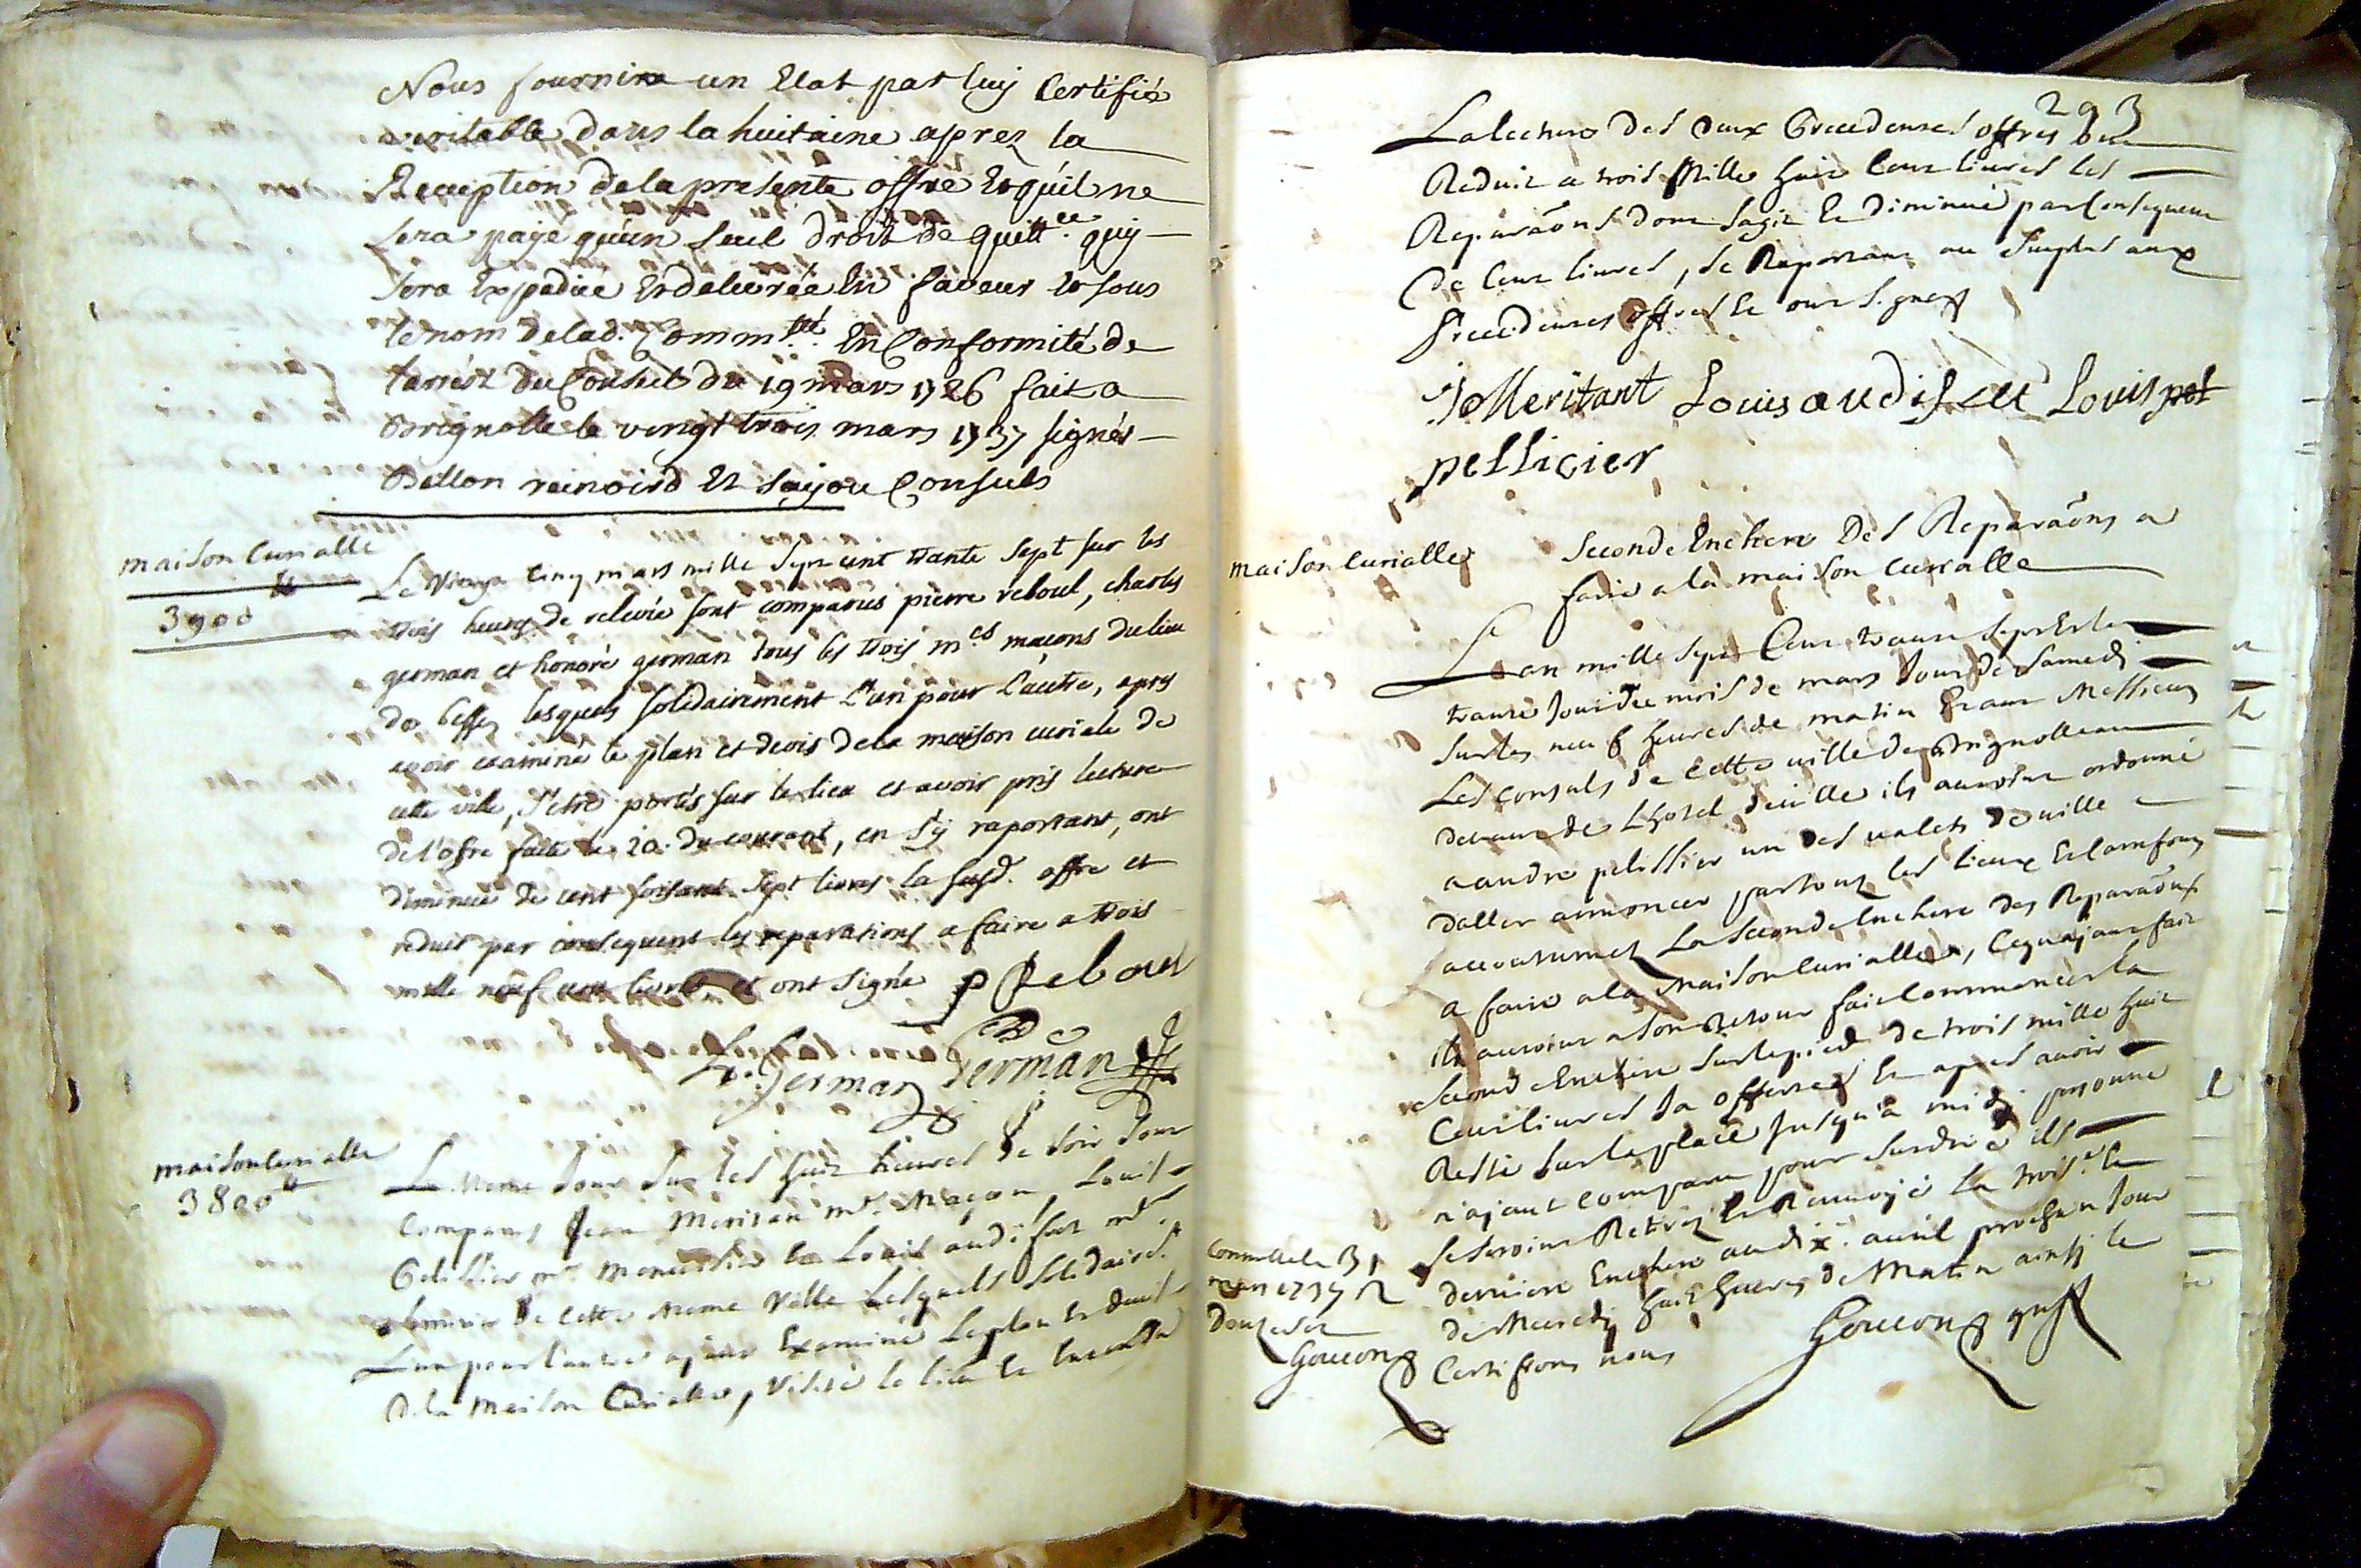 Nous fournira un Etat par luy Certifié
veritable dans la huitaine aprez la
Reception dela presente offre Et qu'il ne
sera payé qu'un seul droit de quitt.ce quy
sera Expediée Et delivrée En faveur Et sous
le nom delad. Comm.té En Conformité de
l'arrest du Conseil du 19 mars 1726 fait a
Brignolle le vingt trois mars 1737 signés
Bellon reinoird Et Consuls
maison Curialle
3900 ₶
Le vingt Cinq mars mille Sept cent trante Sept sur les
trois heures de relevée sont comparus pierre reboul, charles
german et honoré german tous les trois m.es maçons du lieu
de besse lesquels solidairement l'un pour l'autre, apres
avoir examiné le plan et devis dela maison curiale de
cette ville, s'etre portés sur le lieu et avoir pris lecture
de l'ofre faite le 20. du courant, en s'y raportant, ont
diminué de cent soisante sept livres la susd. offre et
reduit par consequent les reparations a faire a trois
mille neuf cent livres et ont signé P Reboul
german German
maison Curialle
3800 ₶
Le meme Jour Sur les huit heures de soir Sont
Comparus Jean Meritan m.e Maçon, Louis
Pelissier m.e menuisier Et Louis audifret m.e
de Cette meme Ville Lesquels Solidaire.t
L'un pour l'autre ajant Examiné Le plan Et devis
De la Maison Curialle, visité le lieu Et
293
La lecture des deux Precedentes offres ont
Reduit a trois Mille huit Cent livres les
Reparaõns dont sagit Et diminué par Consequent
De Cent livres, Se Raportant au Surplus aux
Precedentes offres Et ont Signés
J Meritant Louis audifret Louis pel
pellicier
maison Curialle
Seconde Enchere Des Reparaõns a
faire a la maison curialle
L'an mille Sept Cent trante Sept Et le
trante Jour du mois de mars Jour de Samedi
Sur les neuf heures de matin Etant Messieurs
Les consuls de Cette ville de Brignolle au
devant de L'hotel de ville ils auroint ordonné
a andre pelissier un des valets de ville
d'aller annoncer par tous les lieux Et Carrefours
accoutumez La Seconde Enchere des Reparaõns
a faire a la Maison Curialle, Ce qu'ajant fait
ils auroint a son Retour fait Commencer la
Seconde Enchere Sur le pied de trois mille huit
Cent livres Ja offertes Et apres avoir
Resté Sur la place Jusqu'a midi personne
n'ajant comparu pour Surdire ils
Se Seroint Retirez Et Renvoyé la trois.e Et
derniere Enchere au dix avril prochain Jour
de Mecredi huit heures de Matin ainsi le
Certifions nous Goujong greff
Controllé le 31
mars 1737 R
Douze sols
Goujong